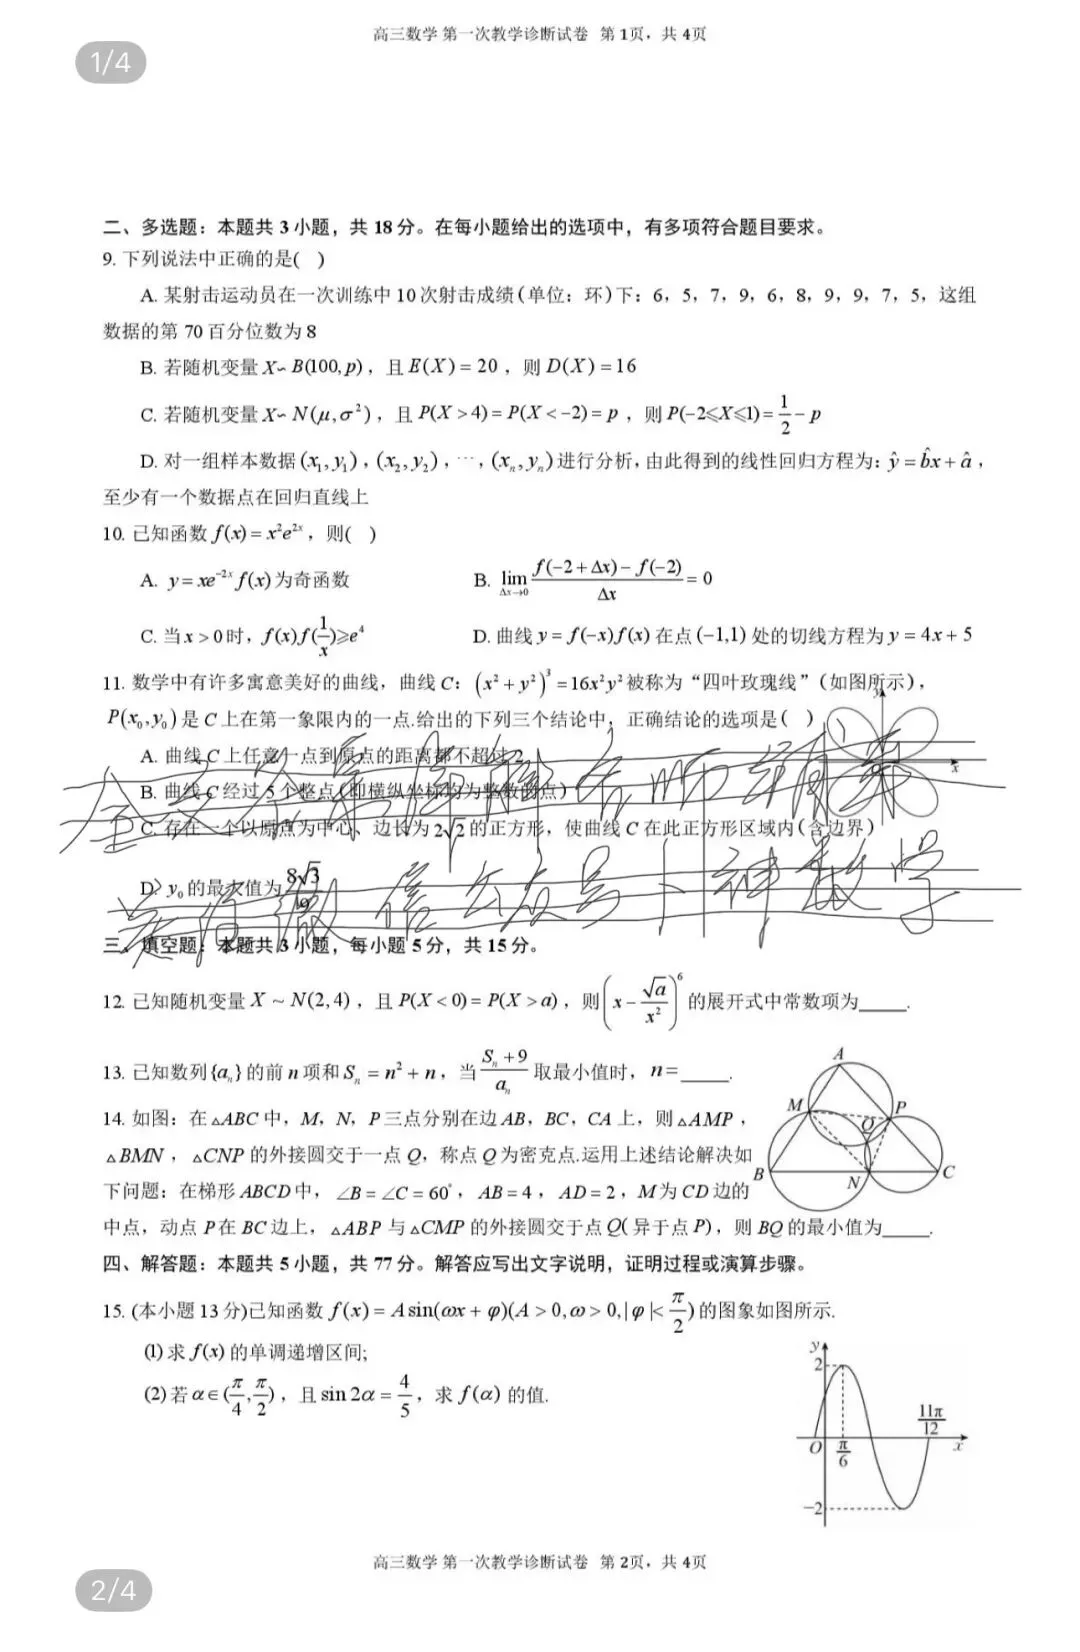 高三数学 第一次教学诊断试卷 第 1页，共 4页
1/4
二、多选题：本题共 3 小题，共 18 分。在每小题给出的选项中，有多项符合题目要求。
9. 下列说法中正确的是( )
A. 某射击运动员在一次训练中 10 次射击成绩(单位：环)下：6，5，7，9，6，8，9，9，7，5，这组
数据的第 70 百分位数为 8
B. 若随机变量 X~B(100, p)，且 E(X) = 20，则 D(X) = 16
C. 若随机变量 X~N(μ,σ²)，且 P(X > 4) = P(X < −2) = p，则 P(−2⩽X⩽1) = 1/2 − p
D. 对一组样本数据 (x₁, y₁)，(x₂, y₂)，⋯，(xₙ, yₙ) 进行分析，由此得到的线性回归方程为：ŷ = b̂x + â，
至少有一个数据点在回归直线上
10. 已知函数 f(x) = x²e²ˣ，则( )
A. y = xe⁻²ˣ f(x) 为奇函数 B. lim Δx→0 (f(−2 + Δx) − f(−2))/Δx = 0
C. 当 x > 0 时，f(x)f(1/x)⩾e⁴ D. 曲线 y = f(−x)f(x) 在点 (−1,1) 处的切线方程为 y = 4x + 5
11. 数学中有许多寓意美好的曲线，曲线 C：(x² + y²)³ = 16x²y² 被称为“四叶玫瑰线”（如图所示），
P(x₀,y₀) 是 C 上在第一象限内的一点.给出的下列三个结论中，正确结论的选项是( )
A. 曲线 C 上任意一点到原点的距离都不超过 2
B. 曲线 C 经过 5 个整点（即横纵坐标均为整数的点）
C. 存在一个以原点为中心、边长为 2√2 的正方形，使曲线 C 在此正方形区域内（含边界）
D. y₀ 的最大值为 8√3/9
y
O
x
微信公众号
数学
三、填空题：本题共 3 小题，每小题 5 分，共 15 分。
12. 已知随机变量 X ~ N(2,4)，且 P(X < 0) = P(X > a)，则 (x − √a/x²)⁶ 的展开式中常数项为____.
13. 已知数列{aₙ}的前 n 项和 Sₙ = n² + n，当 (Sₙ + 9)/aₙ 取最小值时，n=____.
14. 如图：在△ABC 中，M，N，P 三点分别在边 AB，BC，CA 上，则△AMP，
△BMN，△CNP 的外接圆交于一点 Q，称点 Q 为密克点.运用上述结论解决如
下问题：在梯形 ABCD 中，∠B = ∠C = 60°，AB = 4，AD = 2，M 为 CD 边的
中点，动点 P 在 BC 边上，△ABP 与△CMP 的外接圆交于点 Q(异于点 P)，则 BQ 的最小值为____.
A
M
P
Q
B
N
C
四、解答题：本题共 5 小题，共 77 分。解答应写出文字说明，证明过程或演算步骤。
15. (本小题 13 分)已知函数 f(x) = A sin(ωx + φ)(A > 0, ω > 0, | φ |< π/2) 的图象如图所示.
(1) 求 f(x) 的单调递增区间;
(2) 若 α∈(π/4, π/2)，且 sin 2α = 4/5，求 f(α) 的值.
y
2
11π/12
O
π/6
x
−2
高三数学 第一次教学诊断试卷 第 2页，共 4页
2/4